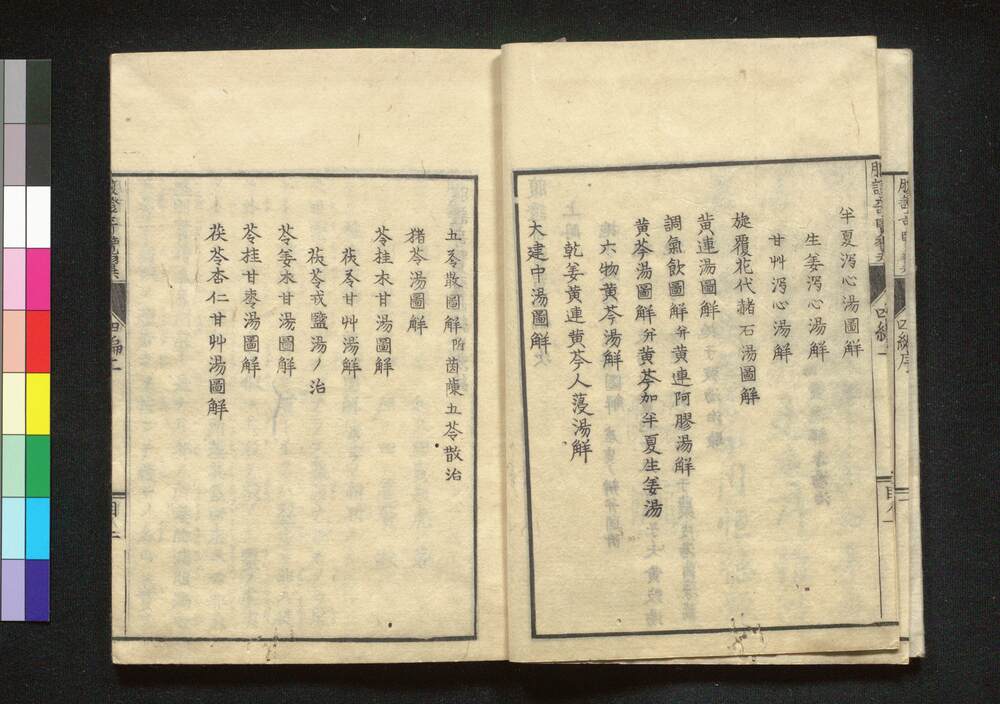 半夏瀉心湯圖解
生姜瀉心湯解
甘艸瀉心湯解
旋覆花代赭石湯圖解
黄連湯圖解
調氣飲圖解并黄連阿膠湯解
黄芩湯圖解并黄芩加半夏生姜湯
六物黄芩湯解
乾姜黄連黄芩人薓湯解
大建中湯圖解
五苓散圖解附茵蔯五苓散治
猪苓湯圖解
苓桂朮甘湯圖解
茯苓甘艸湯解
茯苓戎鹽湯ノ治
苓姜朮甘湯圖解
苓桂甘棗湯圖解
茯苓杏仁甘艸湯圖解